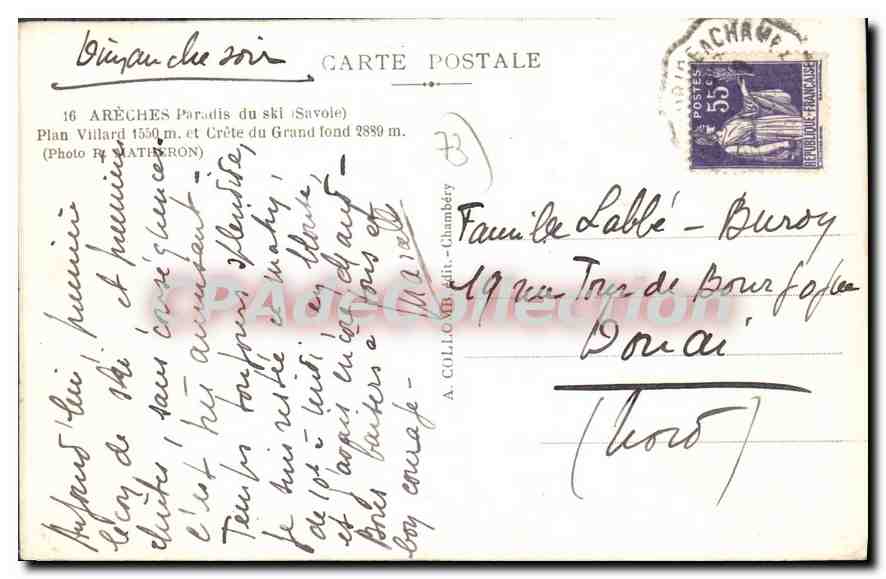 Dimanche soir
CARTE POSTALE
16 ARÈCHES Paradis du ski (Savoie)
Plan Villard 1550 m. et Crête du Grand fond 2889 m.
(Photo R. MATHERON)
Aujourd'hui, première
leçon de ski, et premières
chûtes, sans conséquences
c'est très amusant -
Temps toujours splendide,
je suis restée ce matin,
de 10h à midi en blouse,
et j'avais encore chaud -
Bons baisers à tous et
bon courage - Marcelle
A. COLLOMB, édit. - Chambéry
POSTES
55c
REPUBLIQUE FRANÇAISE
Famille Labbé - Buroy
19 rue Tour de Bourgogne
Douai
(Nord)
CPAdeCollection